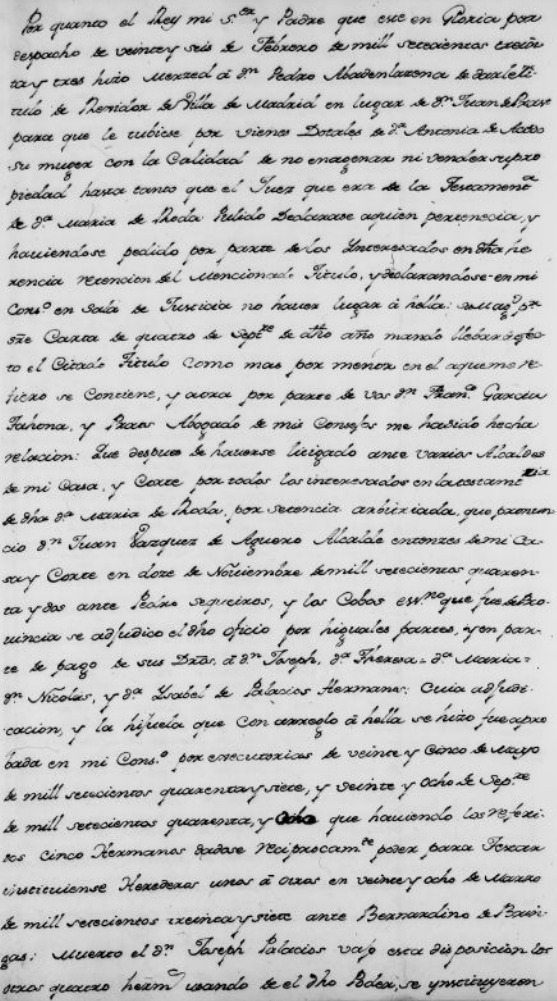 Por quanto el Rey mi s.or y Padre que este en Gloria por
despacho de veinte y seis de Febrero de mill setecientos trein
ta y tres hizo merzed â dn Pedro Abadenlarena de darle ti
tulo de Rexidor de Villa de Madrid en lugar de dn Juan de
para que le tubiese por vienes Dotales de d.a Antonia de
su muger con la Calidad de no enagenar ni vender su pro
piedad hasta tanto que el Juez que era de la Testament.a
de d.a Maria de Rueda Pulido Declarase aquien pertenecia, y
haviendose pedido por parte de los Ynteresados en dha he
rencia retencion del mencionado Titulo, y declarandose en mi
Cons.o en sala de Justicia no haver lugar â hella: su Mag.d p.r
sñe Carta de quatro de Sept.re de dho año mando llebar â efec
to el Citado Titulo como mas por menor en el aqueme re
fiero se Contiene, y aora por parte de vos dn Fran.co Garcia
Tahona, y Abogado de mis Consejos me ha sido hecha
relacion: Que despues de haverse litigado ante varios Alcaldes
de mi Casa, y Corte por todos los interesados en la testamt.ria
de dha d.a Maria de Rueda, por setencia arbitriada, que pronun
cio dn Juan Vazquez de Aguero Alcalde entonzes de mi Ca
sa y Corte en doze de Noviembre de mill setecientos quaren
ta y dos ante Pedro sequeiros, y los Cobos ess.no que fue de Pro
vincia se adjudico el dho oficio por higuales partes, y en par
te de pago de sus Dros. â dn Joseph, d.a Theresa = d.a Maria =
dn Nicolas, y d.a Ysabel de Palacios Hermanos: Cuia adjudi
cacion, y la hijuela que con arreglo â hella se hizo fue apro
bada en mi Cons.o por executorias de veinte y Cinco de Mayo
de mill setecientos quarenta y siete, y veinte y ocho de Sep.re
de mill setecientos quarenta, y ocho que haviendo los referi
dos cinco Hermanos dadose reciprocam.te poder para Testar
instituiense Herederos unos â otros en veinte y ocho de Marzo
de mill setecientos treinta y siete ante Bernardino de
gas: Muerto el dn Joseph Palacios vajo esta disposicion los
otros quatro herm.s usando de el dho Poder, se ynstituyeron